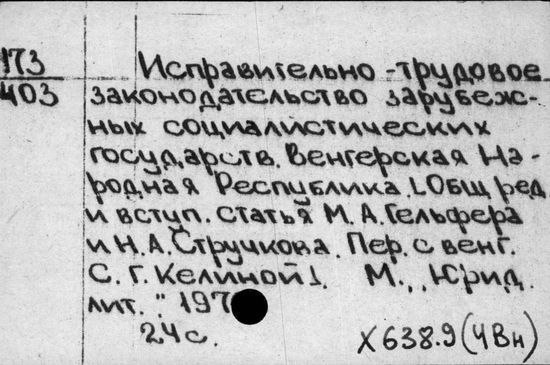 173
403
Исправительно-трудовое
законодательство зарубеж-
ных социалистических
государств. Венгерская На-
родная Республика. [Общ. ред.
и вступ. статья М. А. Гельфера
и Н. А. Стручкова. Пер. с венг.
С. Г. Келиной]. М., "Юрид.
лит.", 197
24 с.
X638.9(4Вн)